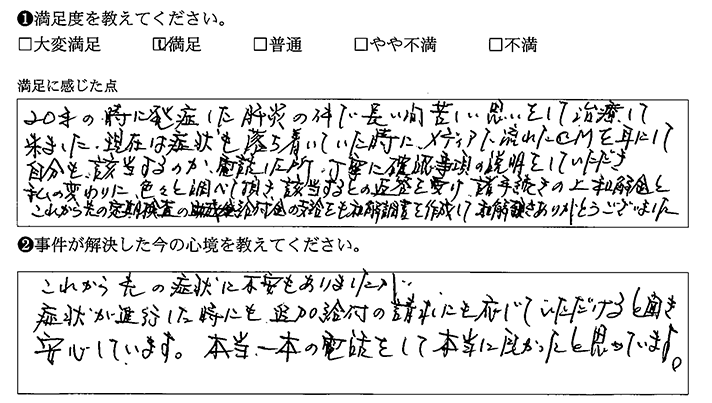 ❶満足度を教えてください。
□大変満足 ☑満足 □普通 □やや不満 □不満
満足に感じた点
20才の時に発症した肝炎の件で長い間苦しい思いをして治療して
来ました。現在は症状も落ち着いていた時に、メディアで流れたCMを耳にして
自分も該当するのか、電話した所、丁寧に確認事項の説明をしていただき
私の変わりに色々と調べて頂き該当するとの返答を受け 諸手続きの上和解金と
これから先の定期検査の 給付金の支給をも和解調書を作成して 頂きありがとうございました
❷事件が解決した今の心境を教えてください。
これから先の症状に不安もありましたが、
症状が進行した時にも追加給付の請求にも応じていただけると聞き
安心しています。本当、一本の電話をして本当に良かったと思っています。